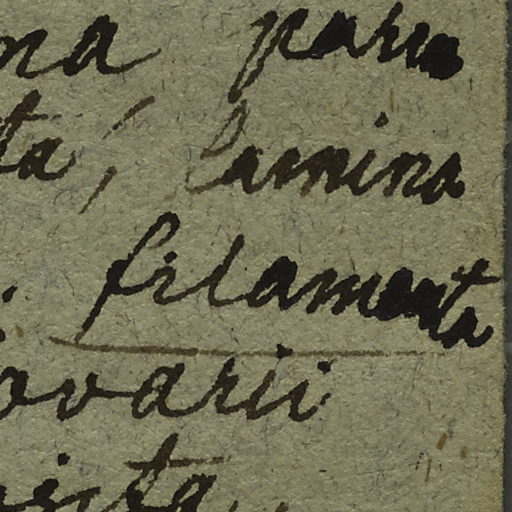 na parva
ta, lamina
. filamenta
ovarii